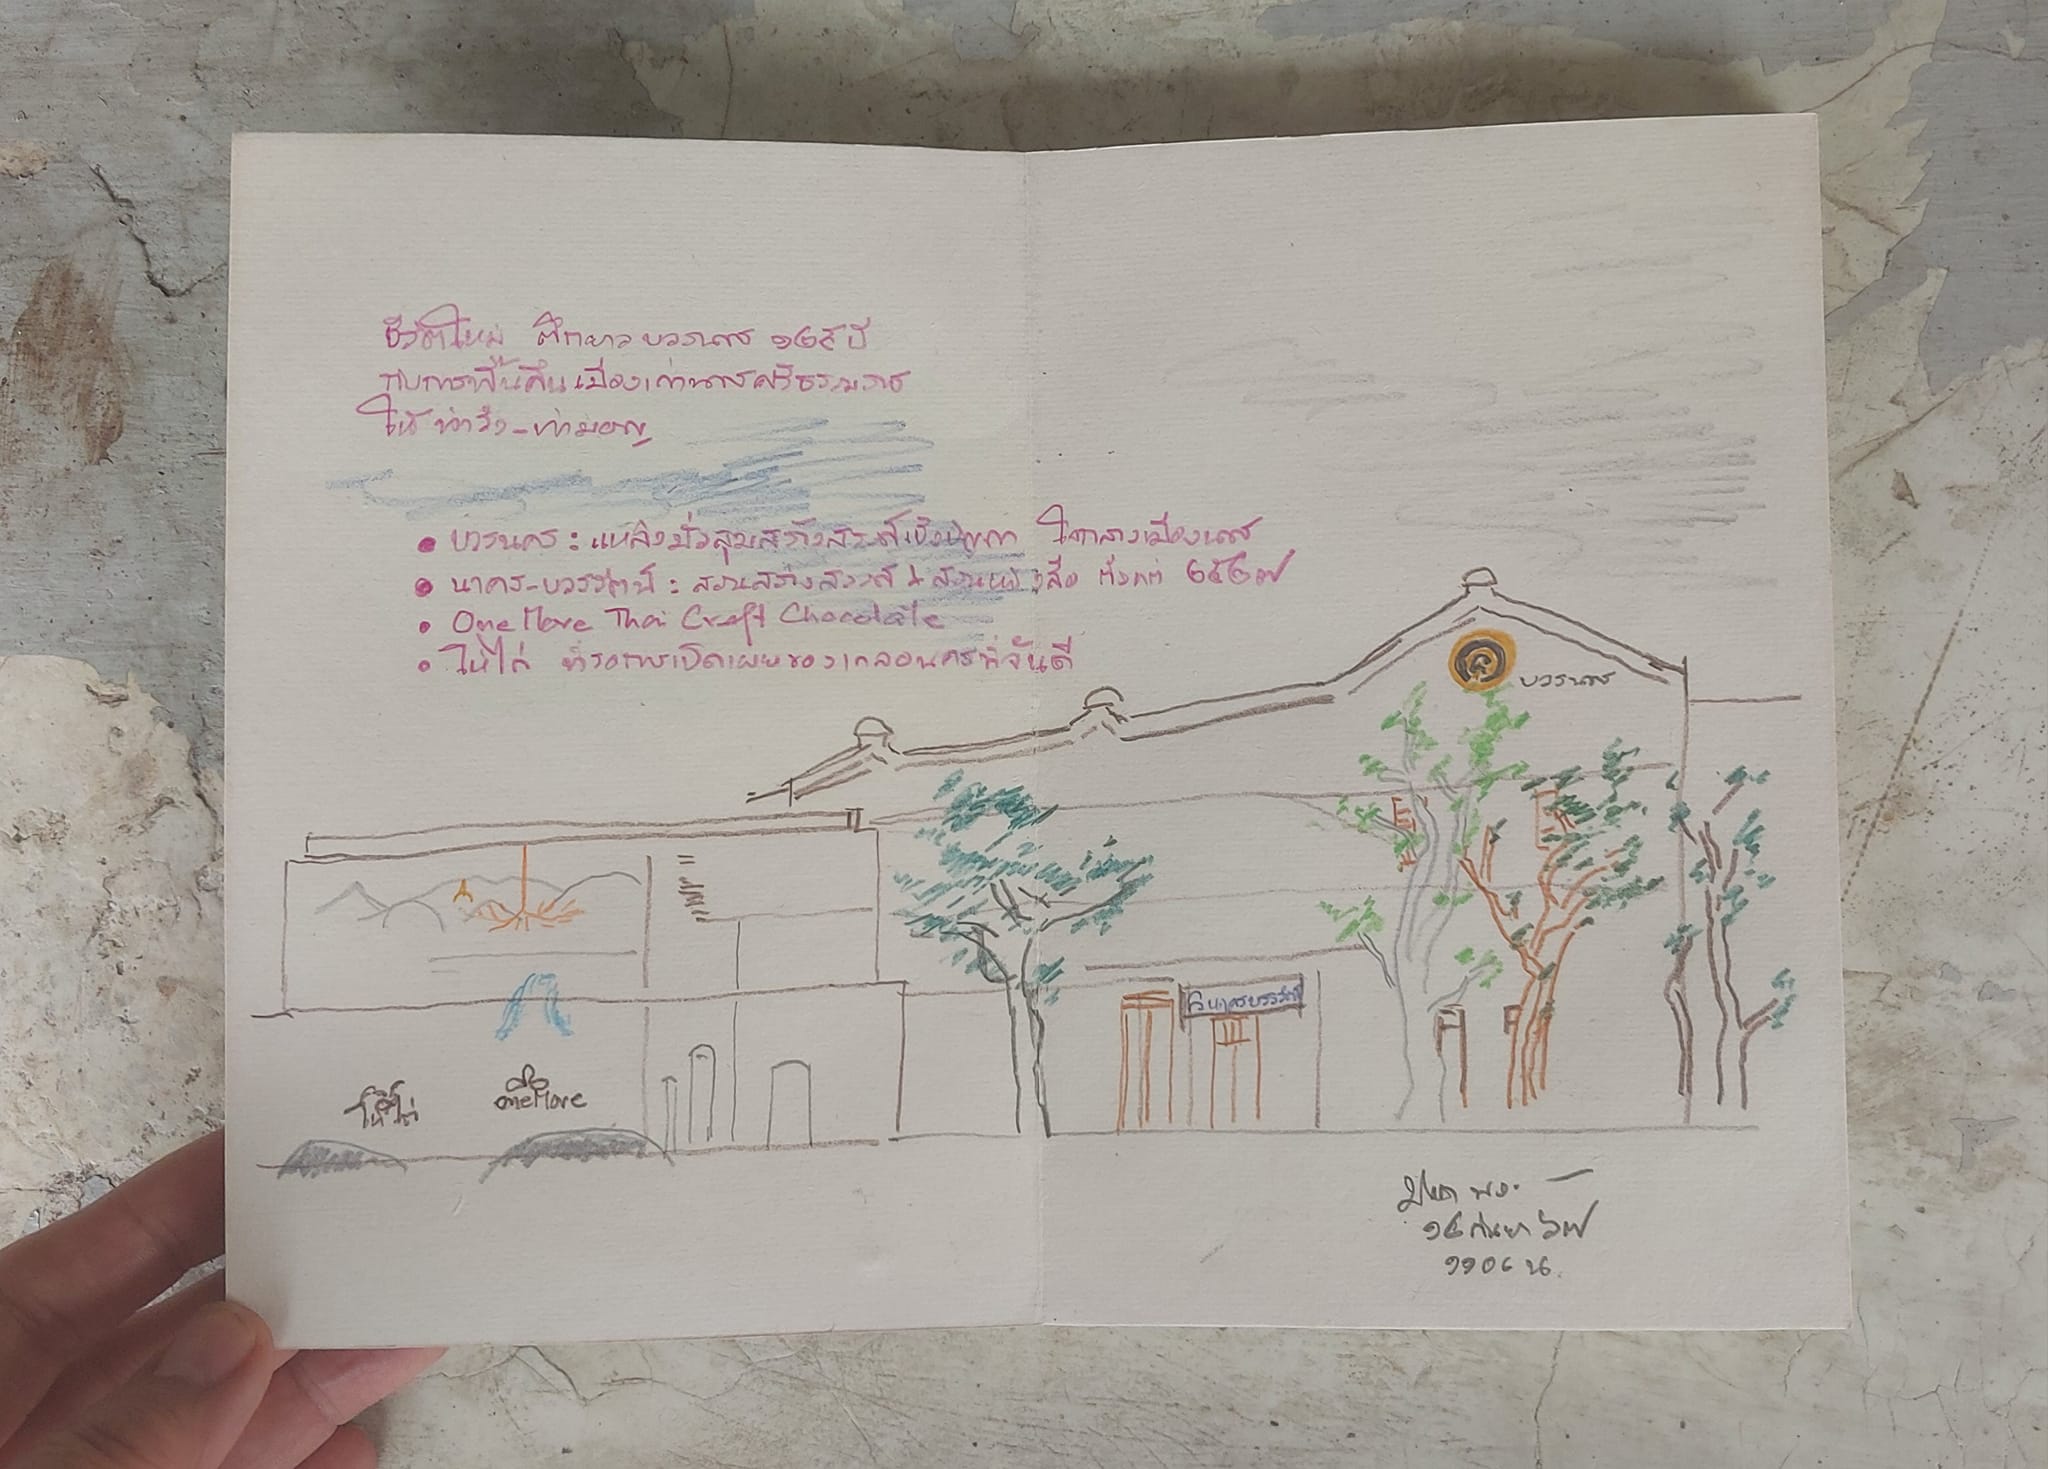 ชีวิตใหม่ ตึกยาวบวรนคร ๑๒๕ ปี
กับการฟื้นคืนเมืองเก่านครศรีธรรมราช
ให้ ท่าวัง-ท่ามอญ
• บวรนคร : แหล่งมั่วสุมสร้างสรรค์เชิงปัญญา ใจกลางเมืองนคร
• นาคร-บวรรัตน์ : สวนสร้างสรรค์ & สวนหนังสือ ตั้งแต่ ๒๕๒๗
• One More Thai Craft Chocolate
• ให้ไต่ ที่รอการเปิดเผยของเกลอนครที่จันดี
บวรนคร
นาครบวรรัตน์
ให้ไต่
oneMore
๑๕ กันยา ๖๗
๑๑๐๔ น.